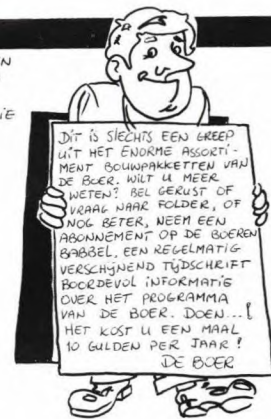 N
IE
DIT IS SLECHTS EEN GREEP
UIT HET ENORME ASSORTI-
MENT BOUWPAKKETTEN VAN
DE BOER. WILT U MEER
WETEN? BEL GERUST OF
VRAAG NAAR FOLDER, OF
NOG BETER, NEEM EEN
ABONNEMENT OP DE BOEREN
BABBEL, EEN REGELMATIG
VERSCHIJNEND TIJDSCHRIFT
BOORDEVOL INFORMATIE
OVER HET PROGRAMMA
VAN DE BOER. DOEN...!
HET KOST U EEN MAAL
10 GULDEN PER JAAR!
DE BOER